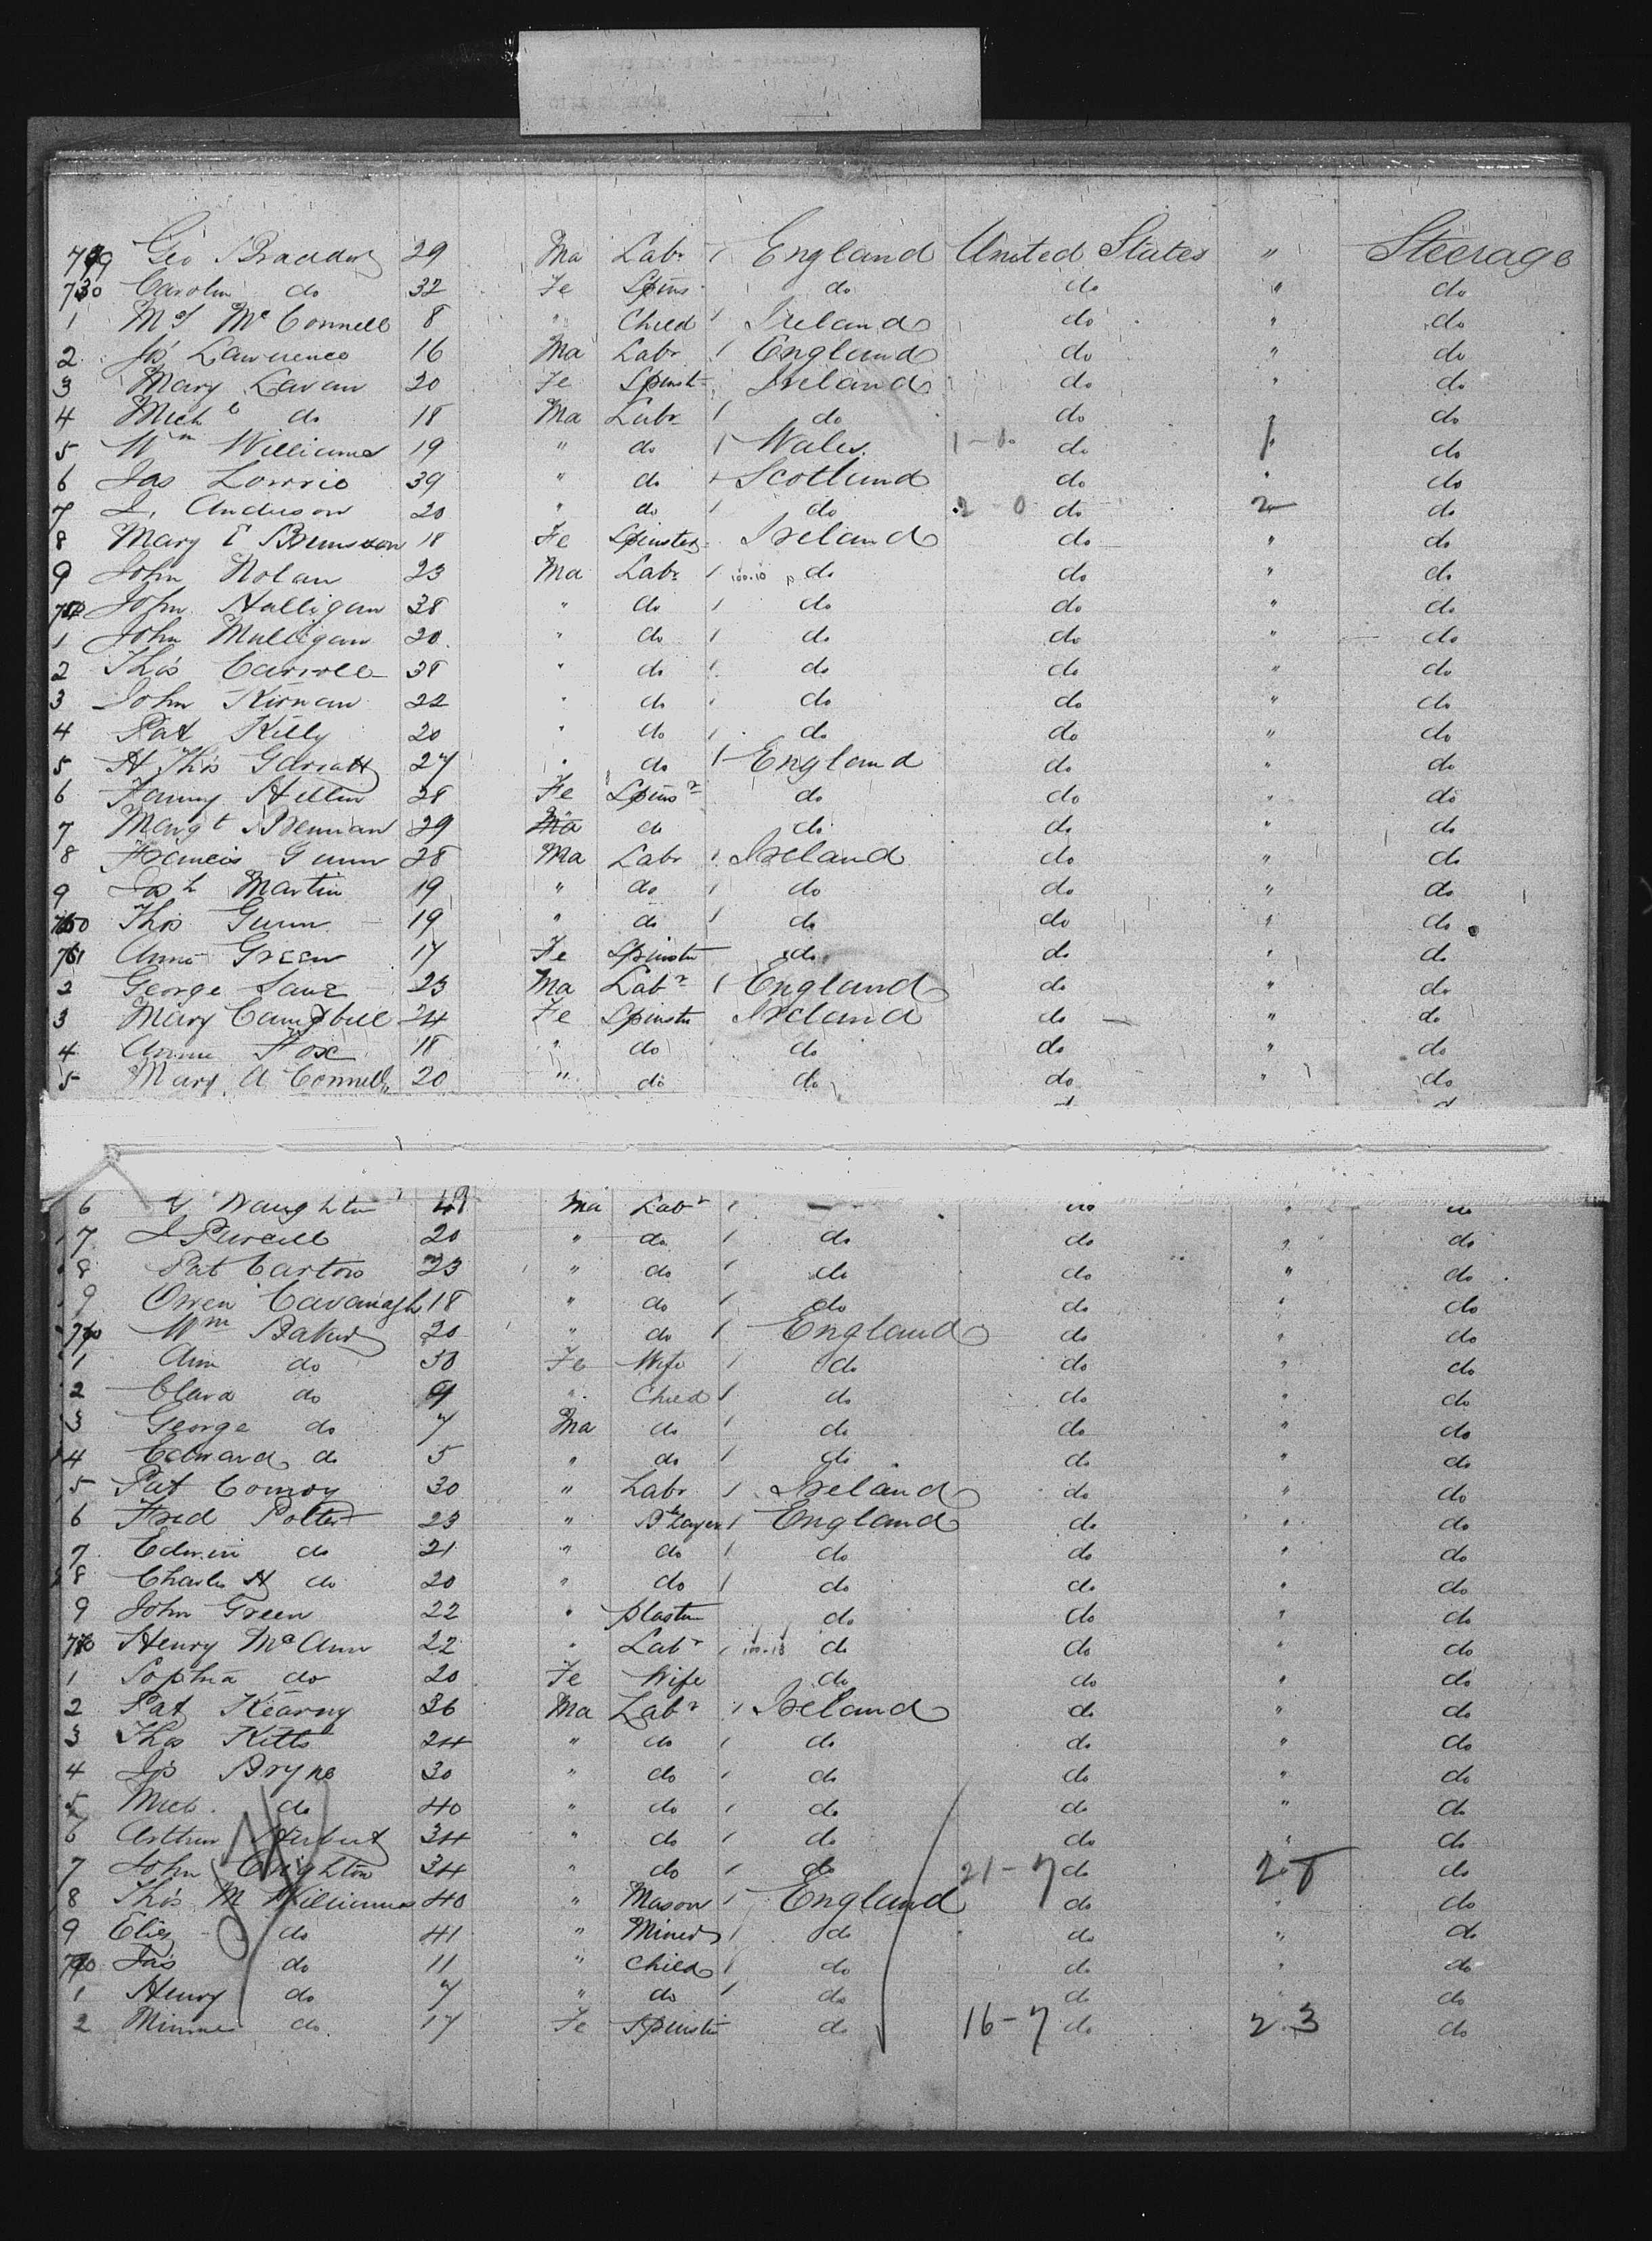 Geo 29 Ma Labr England United States " Steerage
730 Carolin do 32 Fe Spins do do " do
1 Mc Connell 8 " Child Ireland do " do
2 Jos Lawrence 16 Ma Labr England do " do
3 Mary Lavan 20 Fe Spinstr Ireland do " do
4 Michl do 18 Ma Labr do do do
5 Wm Williams 19 " do Wales do do
6 Jas Lowrie 39 " do Scotland do " do
7 Anderson 20 " do do 2 - 0 do 2 do
8 Mary E 18 Fe Spinster Ireland do " do
9 John Nolan 23 Ma Labr do do " do
John Halligan 38 " do do do " do
1 John Mulligan 20 " do do do " do
2 Thos Carroll 38 " do do do " do
3 John Kirnan 22 " do do do " do
4 Pat Kelly 20 " do do do " do
5 H Thos Garratt 27 " do England do " do
6 Fanny 28 Fe Spinsr do do " do
7 Margt Brennan 29 Ma do do do " do
8 Francis Gunn 28 Ma Labr Ireland do " do
9 Josh Martin 19 " do do do " do
Thos Gunn 19 " do do do " do
Anne Green 17 Fe Spinstr do do " do
2 George 23 Ma Labr England do " do
3 Mary Campbell 24 Fe Spinstr Ireland do " do
4 Annie Fox 18 " do do do " do
5 Mary A Connell 20 " do do do " do
6 Naughton Ma Labr do " do
7 J Purcell 20 " do do do " do
8 Pat 23 " do do do " do
9 Owen Cavanagh 18 " do do do " do
Wm Baker 30 " do England do " do
1 Ann do 30 Fe Wife do do " do
2 Clara do 9 " Child do do " do
3 George do 7 Ma do do do " do
4 Edward do 5 " do do do " do
5 Pat Conroy 30 " Labr Ireland do " do
6 Fred Potter 23 " England do " do
7 Edwin do 21 " do do do " do
8 Charles H do 20 " do do do " do
9 John Green 22 " plaster do do " do
Henry McAnn 22 " Labr do do " do
1 Sophia do 20 Fe Wife do do " do
2 Pat Kearny 36 Ma Labr Ireland do " do
3 Thos Kitts 24 " do do do " do
4 Jos Bryne 30 " do do do " do
5 Mich do 40 " do do do " do
6 Arthur Herbert 34 " do do do " do
7 John Crighton 34 " do do 21-7 do 28 do
8 Thos M Williams 40 " Mason England do " do
9 do 41 " Miner do do " do
Jas do 11 " Child do do " do
1 Henry do 7 " do do do " do
2 Minnie do 17 Fe Spinstr do 16-7 do 23 do